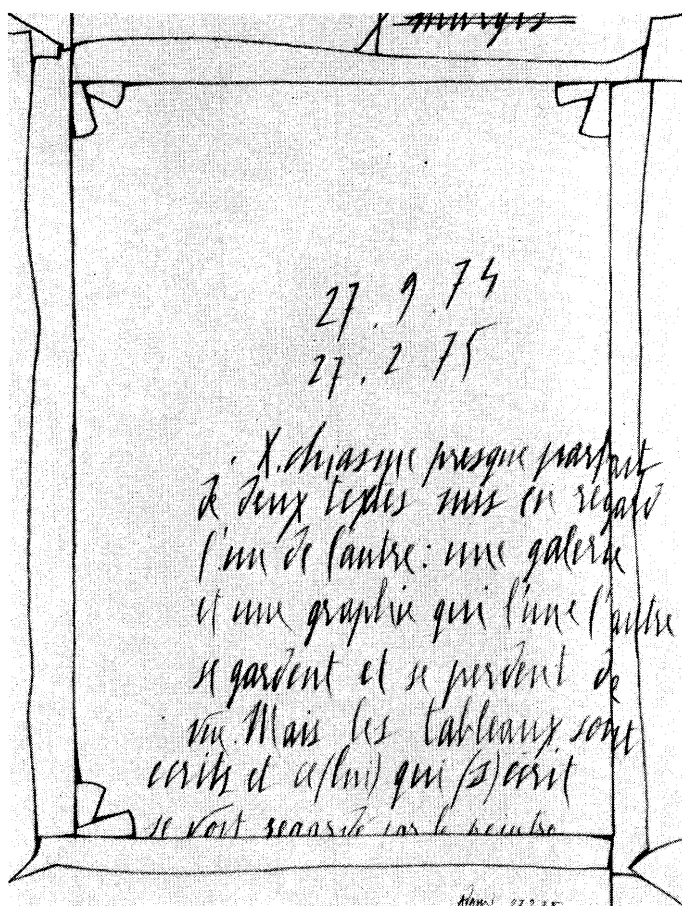 marges
27.9.74
27.2 75
. X. chiasme presque parfait
de deux textes mis en regard
l'un de l'autre: une galerie
et une graphie qui l'une l'autre
se gardent et se perdent de
vue. Mais les tableaux sont
écrits et ce(lui) qui (s)écrit
se voit regardé par le peintre